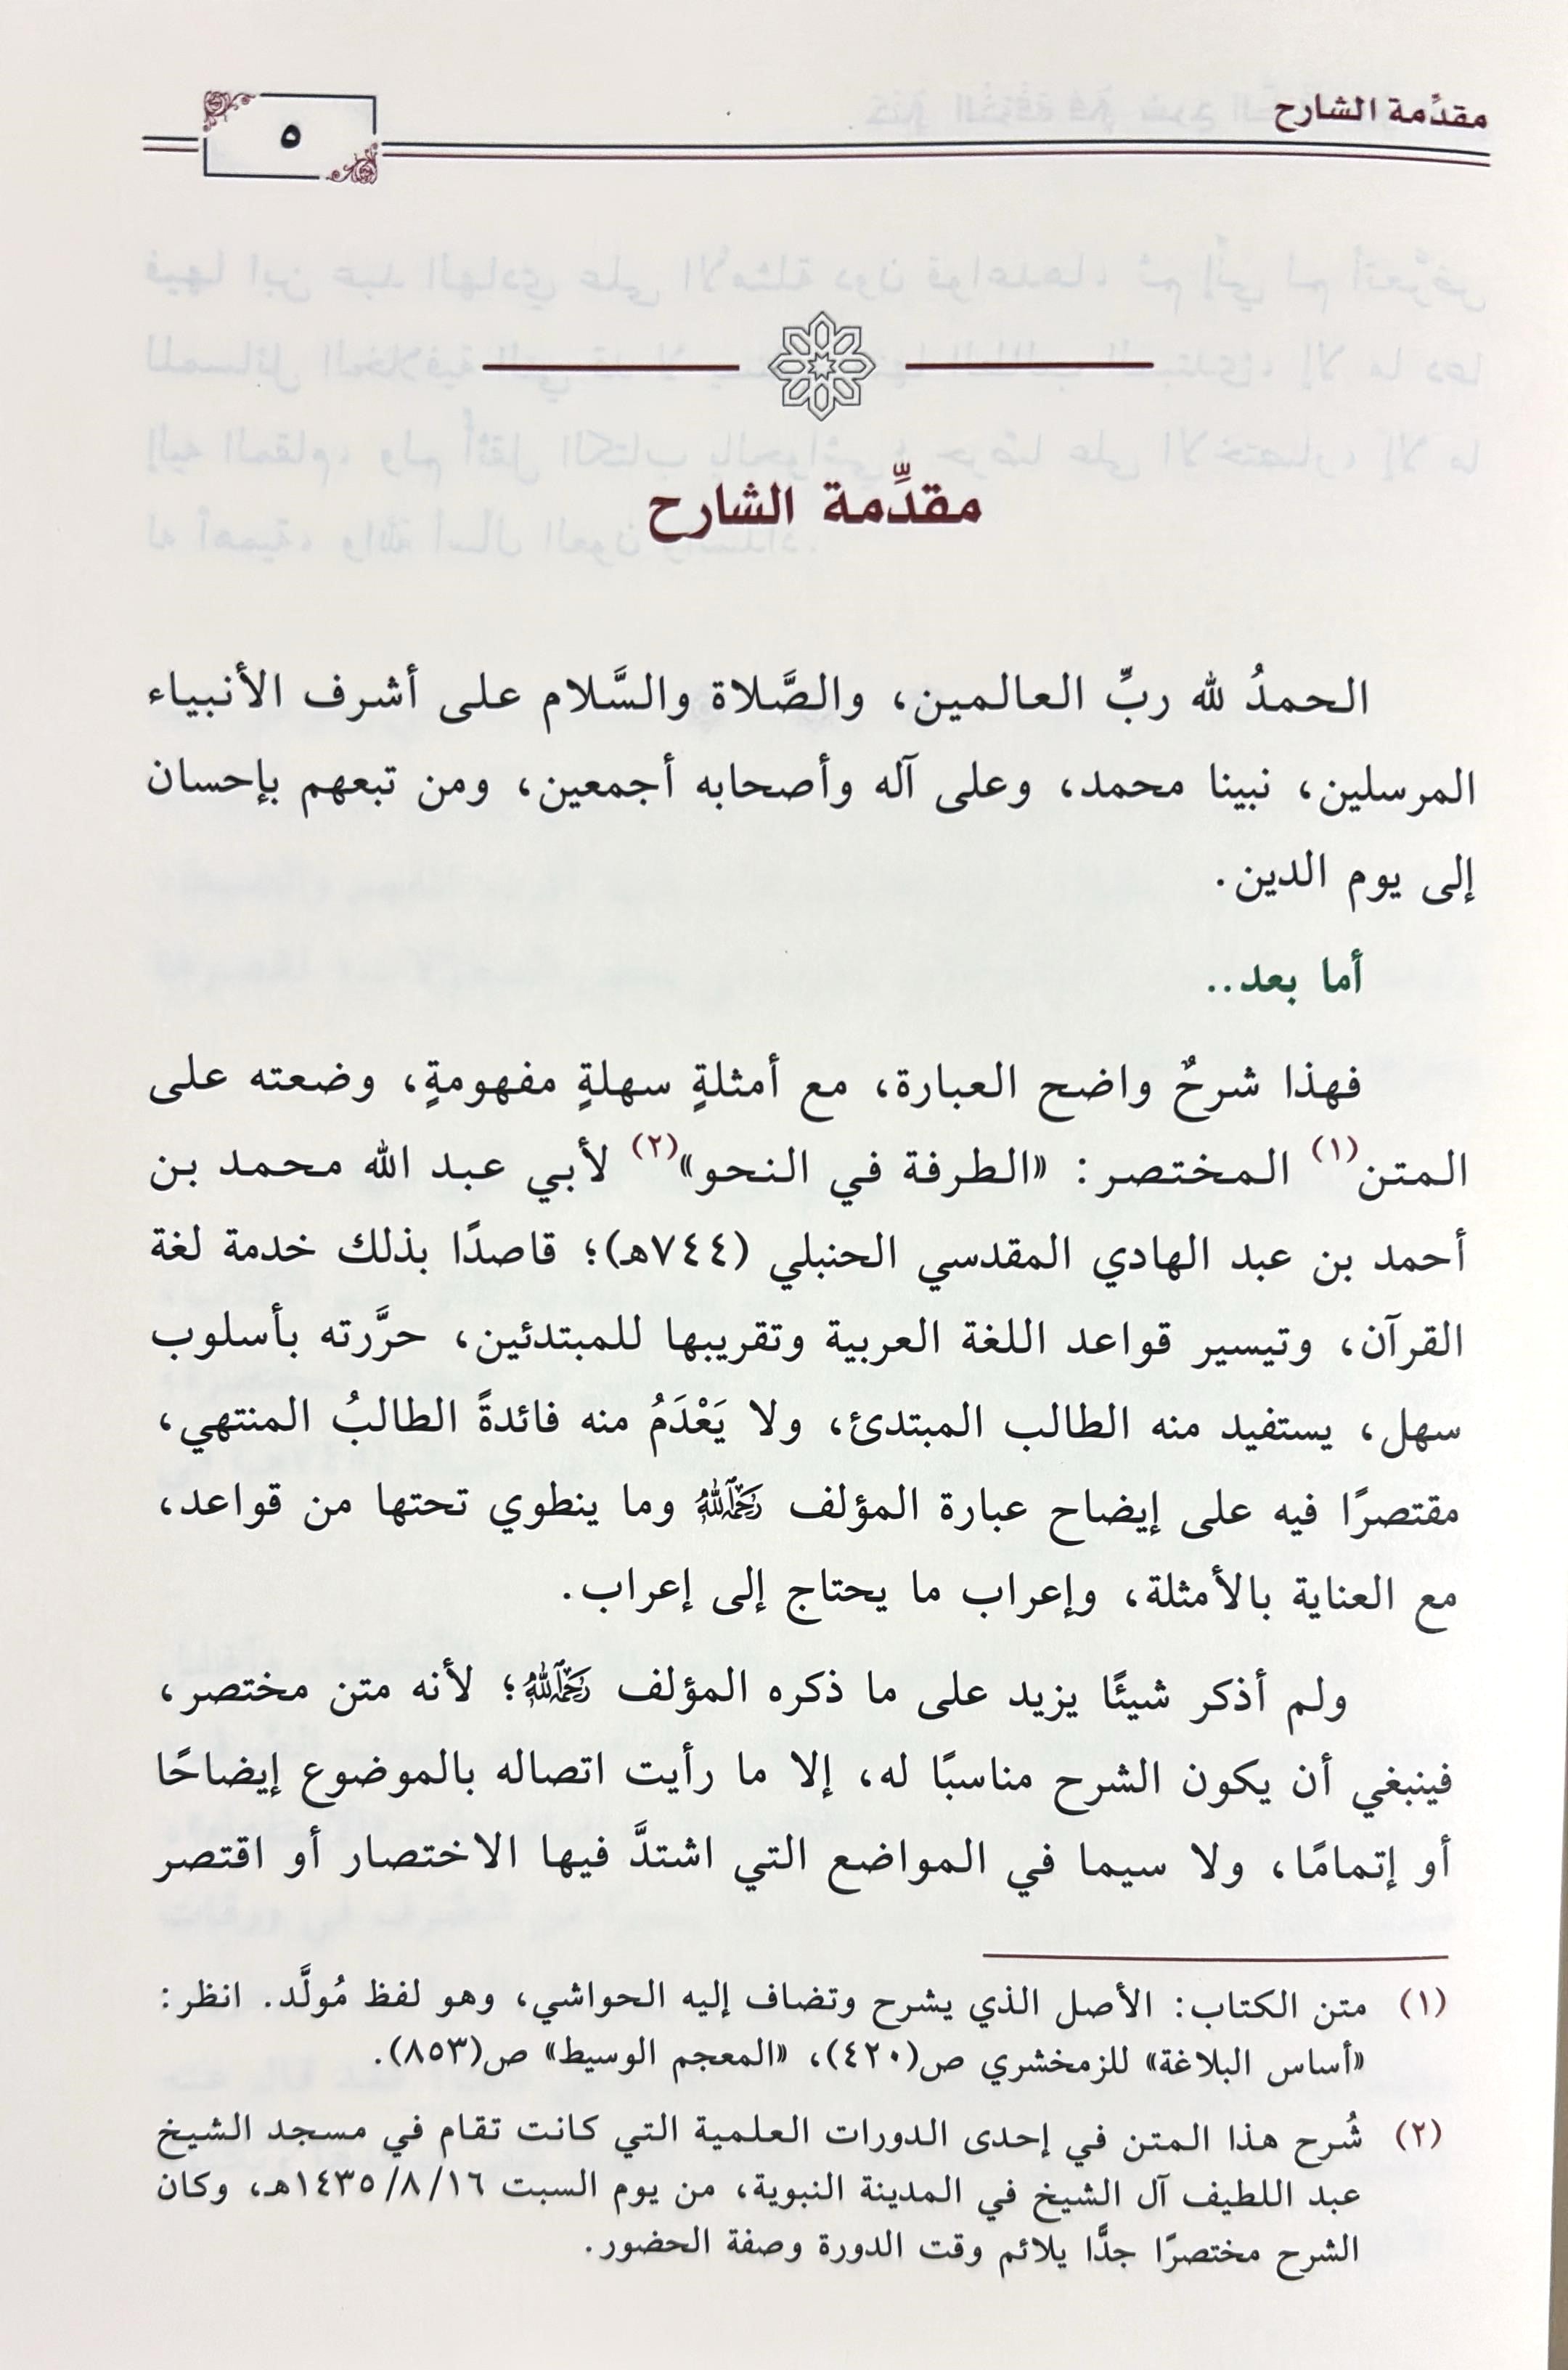 مقدِّمة الشارح
٥
مقدِّمة الشارح
الحمدُ لله ربِّ العالمين، والصَّلاة والسَّلام على أشرف الأنبياء
المرسلين، نبينا محمد، وعلى آله وأصحابه أجمعين، ومن تبعهم بإحسان
إلى يوم الدين.
أما بعد..
فهذا شرحٌ واضح العبارة، مع أمثلةٍ سهلةٍ مفهومةٍ، وضعته على
المتن(١) المختصر: «الطرفة في النحو»(٢) لأبي عبد الله محمد بن
أحمد بن عبد الهادي المقدسي الحنبلي (٧٤٤هـ)؛ قاصدًا بذلك خدمة لغة
القرآن، وتيسير قواعد اللغة العربية وتقريبها للمبتدئين، حرَّرته بأسلوب
سهل، يستفيد منه الطالب المبتدئ، ولا يَعْدَمُ منه فائدةً الطالبُ المنتهي،
مقتصرًا فيه على إيضاح عبارة المؤلف رَحِمَهُ اللهُ وما ينطوي تحتها من قواعد،
مع العناية بالأمثلة، وإعراب ما يحتاج إلى إعراب.
ولم أذكر شيئًا يزيد على ما ذكره المؤلف رَحِمَهُ اللهُ؛ لأنه متن مختصر،
فينبغي أن يكون الشرح مناسبًا له، إلا ما رأيت اتصاله بالموضوع إيضاحًا
أو إتمامًا، ولا سيما في المواضع التي اشتدَّ فيها الاختصار أو اقتصر
(١) متن الكتاب: الأصل الذي يشرح وتضاف إليه الحواشي، وهو لفظ مُولَّد. انظر:
«أساس البلاغة» للزمخشري ص(٤٢٠)، «المعجم الوسيط» ص(٨٥٣).
(٢) شُرح هذا المتن في إحدى الدورات العلمية التي كانت تقام في مسجد الشيخ
عبد اللطيف آل الشيخ في المدينة النبوية، من يوم السبت ١٤٣٥/٨/١٦هـ، وكان
الشرح مختصرًا جدًّا يلائم وقت الدورة وصفة الحضور.